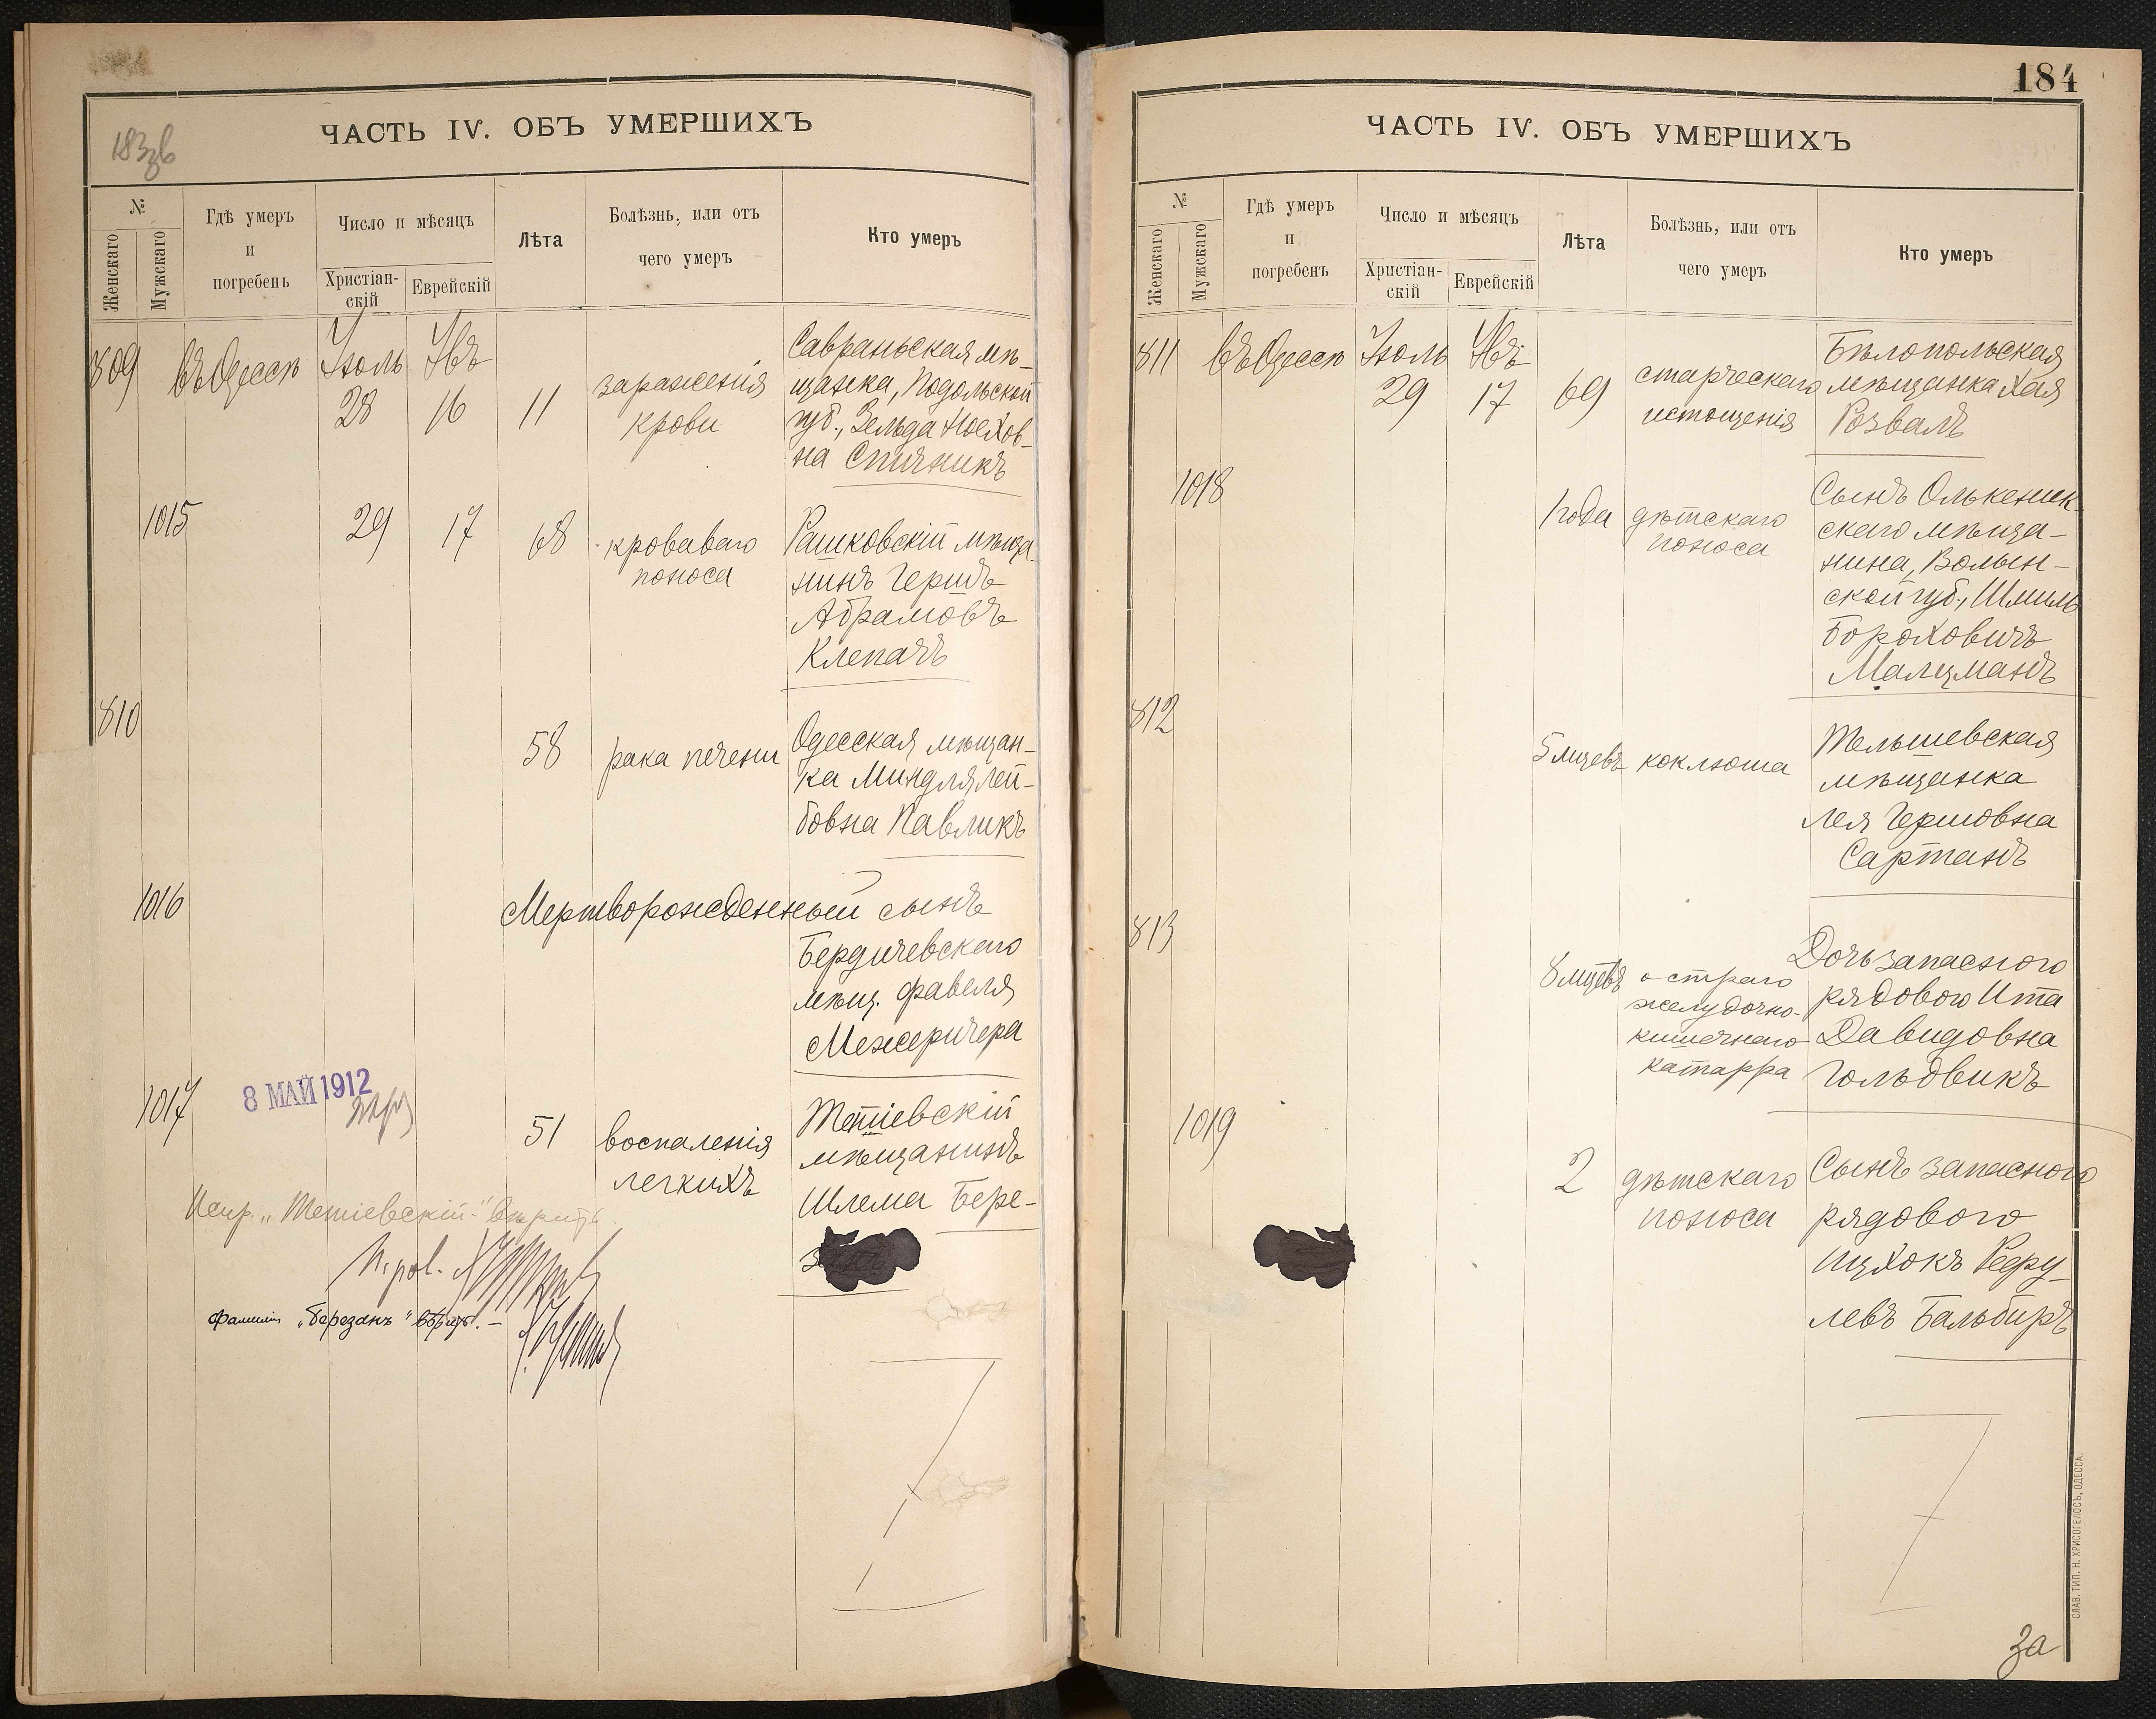 183зв
ЧАСТЬ IV. ОБЪ УМЕРШИХЪ
№
Женскаго
Мужскаго
Гдѣ умеръ
и
погребенъ
Число и мѣсяцъ
Христіан-
скій
Еврейскій
Лѣта
Болѣзнь, или отъ
чего умеръ
Кто умеръ
809
въ Одессѣ
Іюль
28
Авъ
16
11
зараженія
крови
Савраньская мѣ-
щанка, Подольской
губ., Зельда Ноехов-
на Спичникъ
1015
29
17
68
кроваваго
поноса
Рашковскій мѣща-
нинъ Гершъ
Абрамовъ
Клепачъ
810
58
рака печени
Одесская мѣщан-
ка Миндля Лей-
бовна Павликъ
1016
Мертворожденный сынъ
Бердичевскаго
мѣщ. Фавеля
Межеричера
1017
8 МАЙ 1912
51
воспаленія
легкихъ
Тетіевскій
мѣщанинъ
Шлема Бере-
Испр. „Тетіевскій" вѣрить
И. рав.
фамилія „Березанъ" вѣрить. –
184
ЧАСТЬ IV. ОБЪ УМЕРШИХЪ
№
Женскаго
Мужскаго
Гдѣ умеръ
и
погребенъ
Число и мѣсяцъ
Христіан-
скій
Еврейскій
Лѣта
Болѣзнь, или отъ
чего умеръ
Кто умеръ
811
въ Одессѣ
Іюль
29
Авъ
17
69
старческаго
истощенія
Бѣлопольская
мѣщанка Хая
Розвалъ
1018
1 года
дѣтскаго
поноса
Сынъ Олькеник-
скаго мѣща-
нина, Волын-
ской губ., Шмиль
Бороховичъ
Малцманъ
812
5 мцевъ
коклюша
Тельшевская
мѣщанка
Лея Гершовна
Сартанъ
813
8 мцевъ
остраго
желудочно-
кишечнаго
катарра
Дочь запаснаго
рядового Ита
Давидовна
Гольдвикъ
1019
2
дѣтскаго
поноса
Сынъ запаснаго
рядового
Ицхокъ Редру-
левъ Бальбиръ
За
СЛАВ. ТИП. Н. ХРИСОГЕЛОСЪ, ОДЕССА.